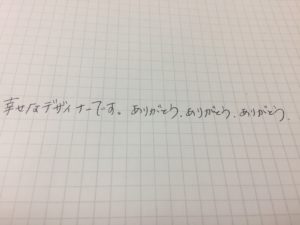 幸せなデザイナーです。ありがとう、ありがとう、ありがとう。